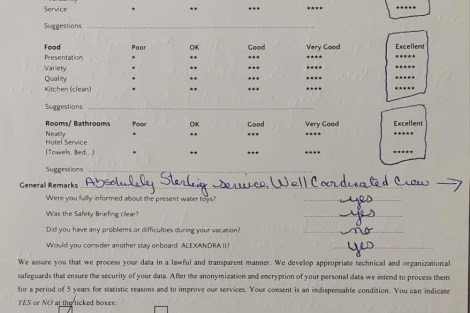 Service * ** *** *****
Suggestions
Food Poor OK Good Very Good Excellent
Presentation * ** *** **** *****
Variety * ** *** **** *****
Quality * ** *** **** *****
Kitchen (clean) * ** *** **** *****
Suggestions
Rooms/ Bathrooms Poor OK Good Very Good Excellent
Neatly * ** *** **** *****
Hotel Service
(Towels, Bed...) * ** *** **** *****
Suggestions
General Remarks Absolutely Sterling service, Well Coordinated Crew →
Were you fully informed about the present water toys? yes
Was the Safety Briefing clear? yes
Did you have any problems or difficulties during your vacation? no
Would you consider another stay onboard ALEXANDRA II? yes
We assure you that we process your data in a lawful and transparent manner. We develop appropriate technical and organizational
safeguards that ensure the security of your data. After the anonymization and encryption of your personal data we intend to process them
for a period of 5 years for statistic reasons and to improve our services. Your consent is an indispensable condition. You can indicate
YES or NO at the ticked boxes: